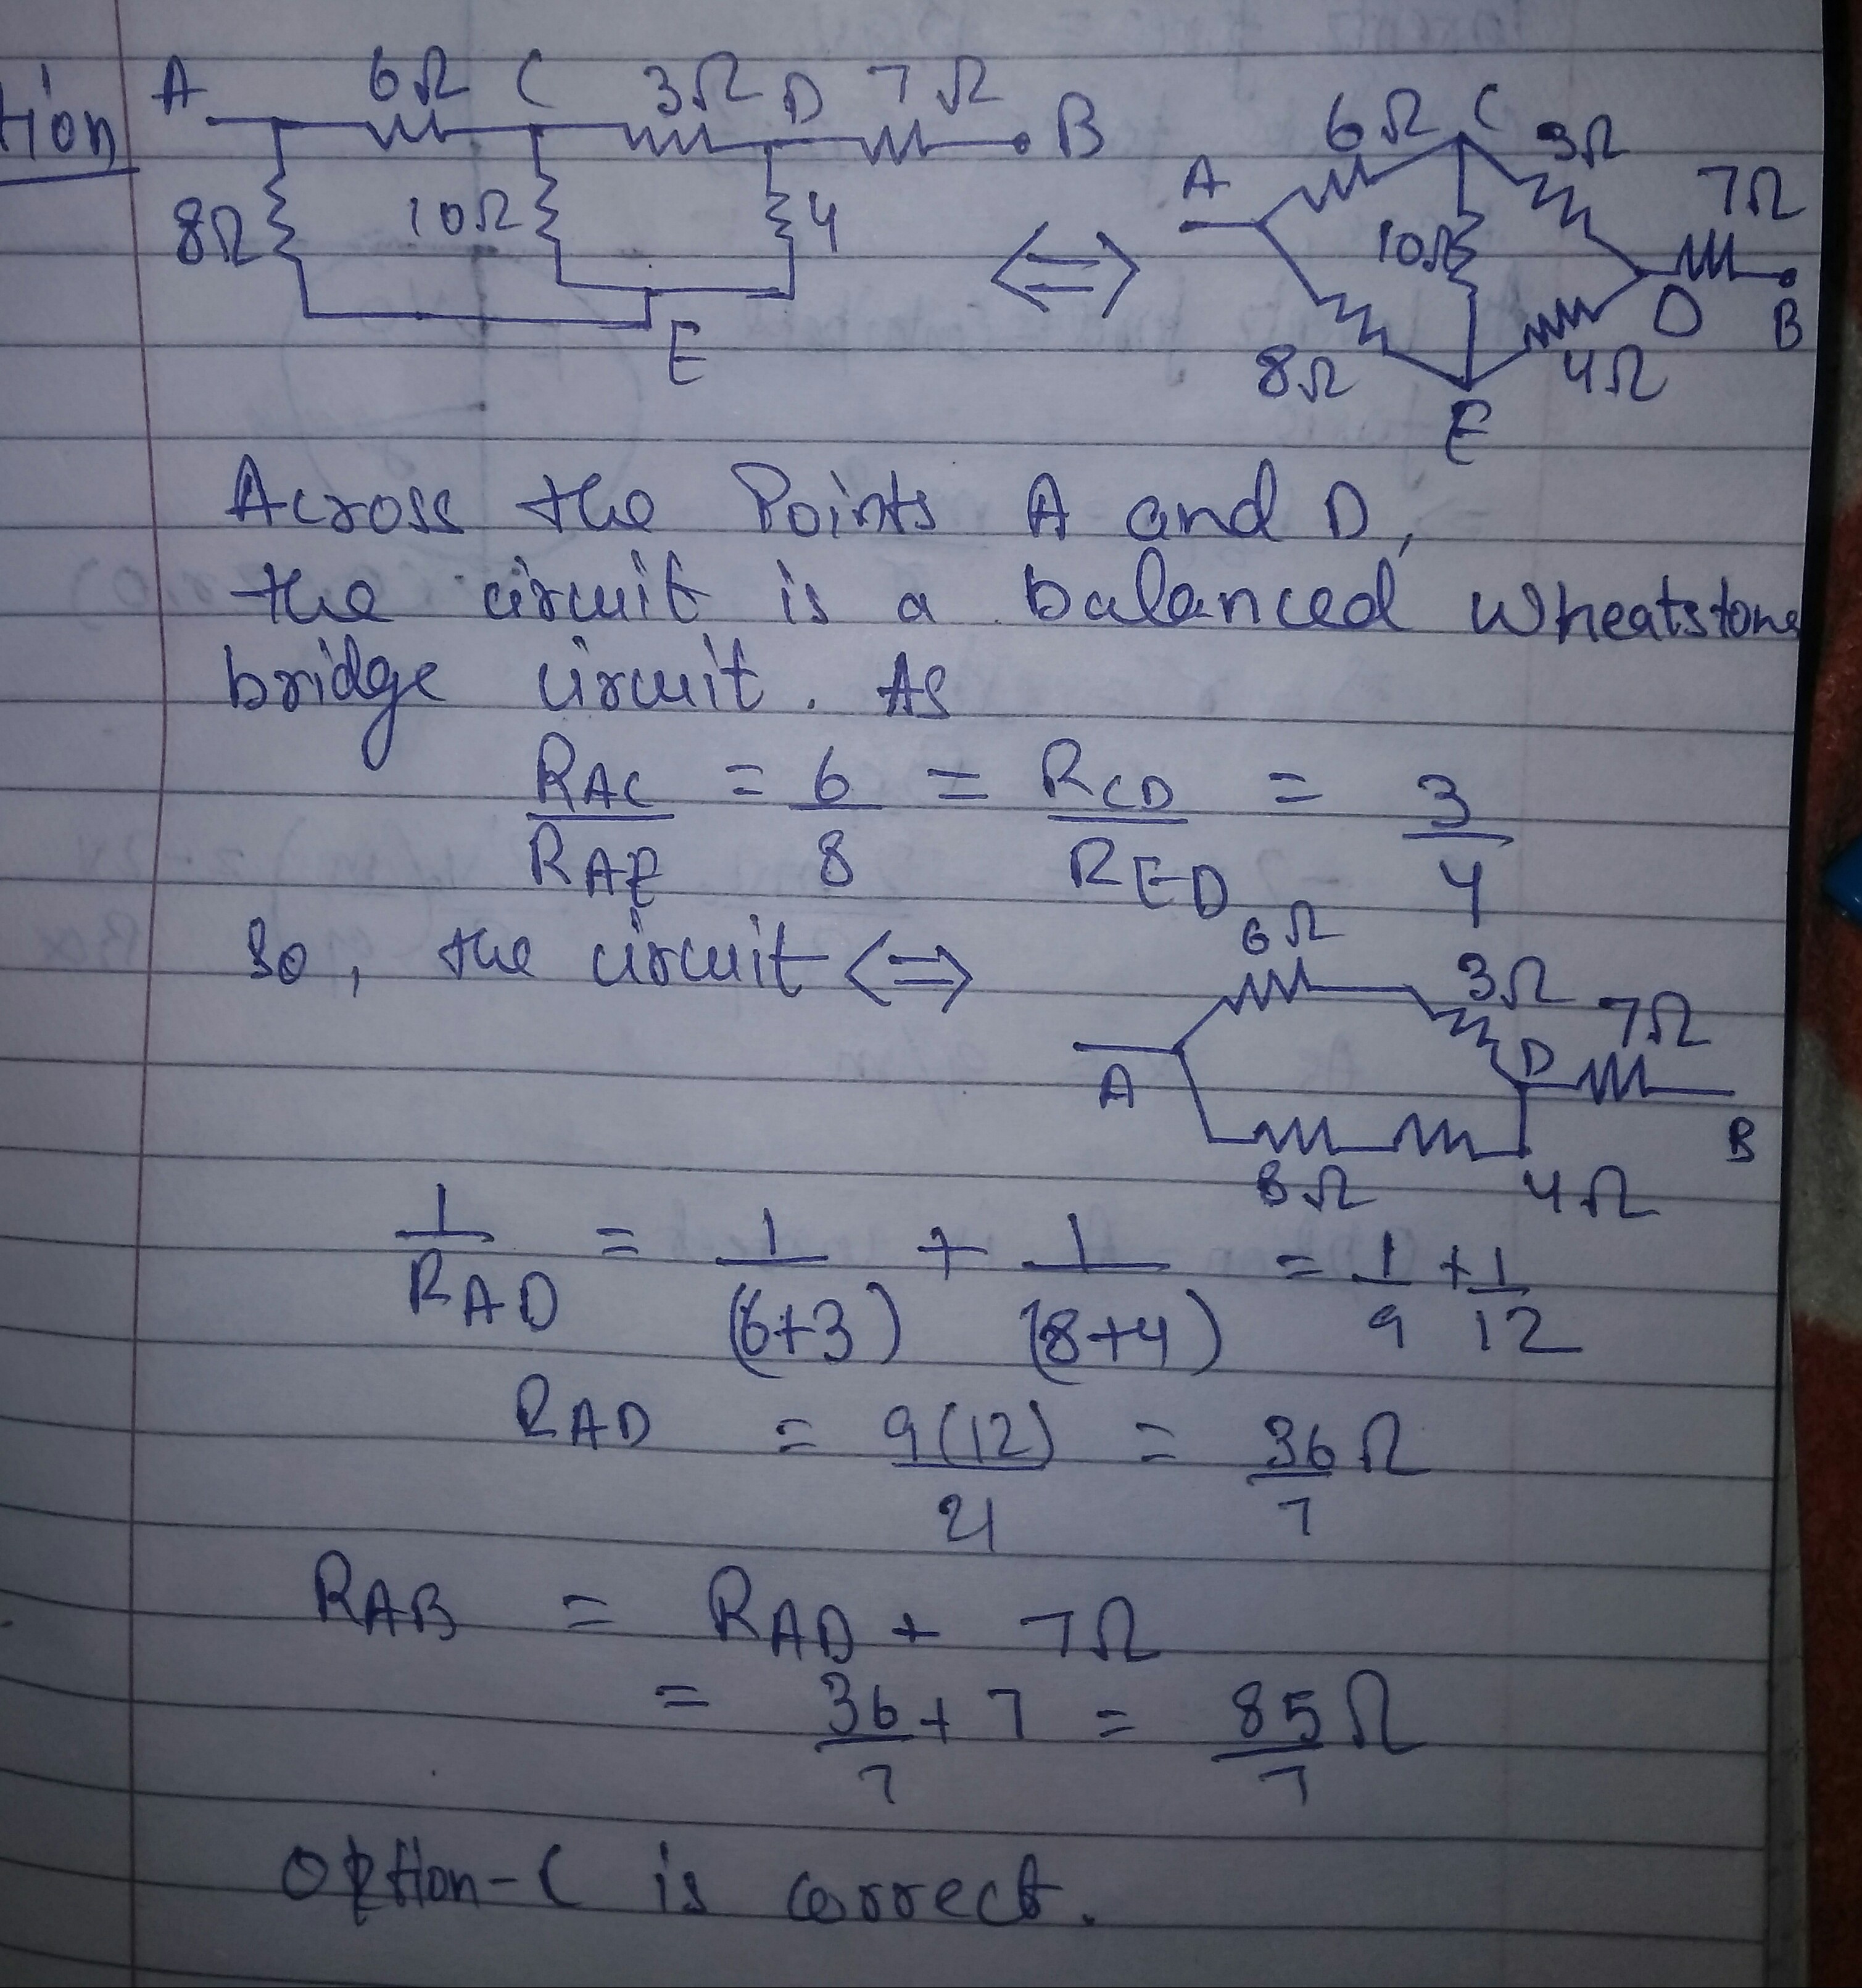 tion
A 6Ω C 3Ω D 7Ω B
8Ω 10Ω 4
E
⇔
6Ω C 3Ω
A 10Ω 7Ω
8Ω 4Ω D B
E
Across the Points A and D,
the circuit is a balanced Wheatstone
bridge circuit. As
RAC/RAE = 6/8 = RCD/RED = 3/4
So, the circuit ⇔
6Ω 3Ω 7Ω
A D B
8Ω 4Ω
1/RAD = 1/(6+3) + 1/(8+4) = 1/9 + 1/12
RAD = 9(12)/21 = 36/7 Ω
RAB = RAD + 7Ω
= 36/7 + 7 = 85/7 Ω
Option-C is correct.